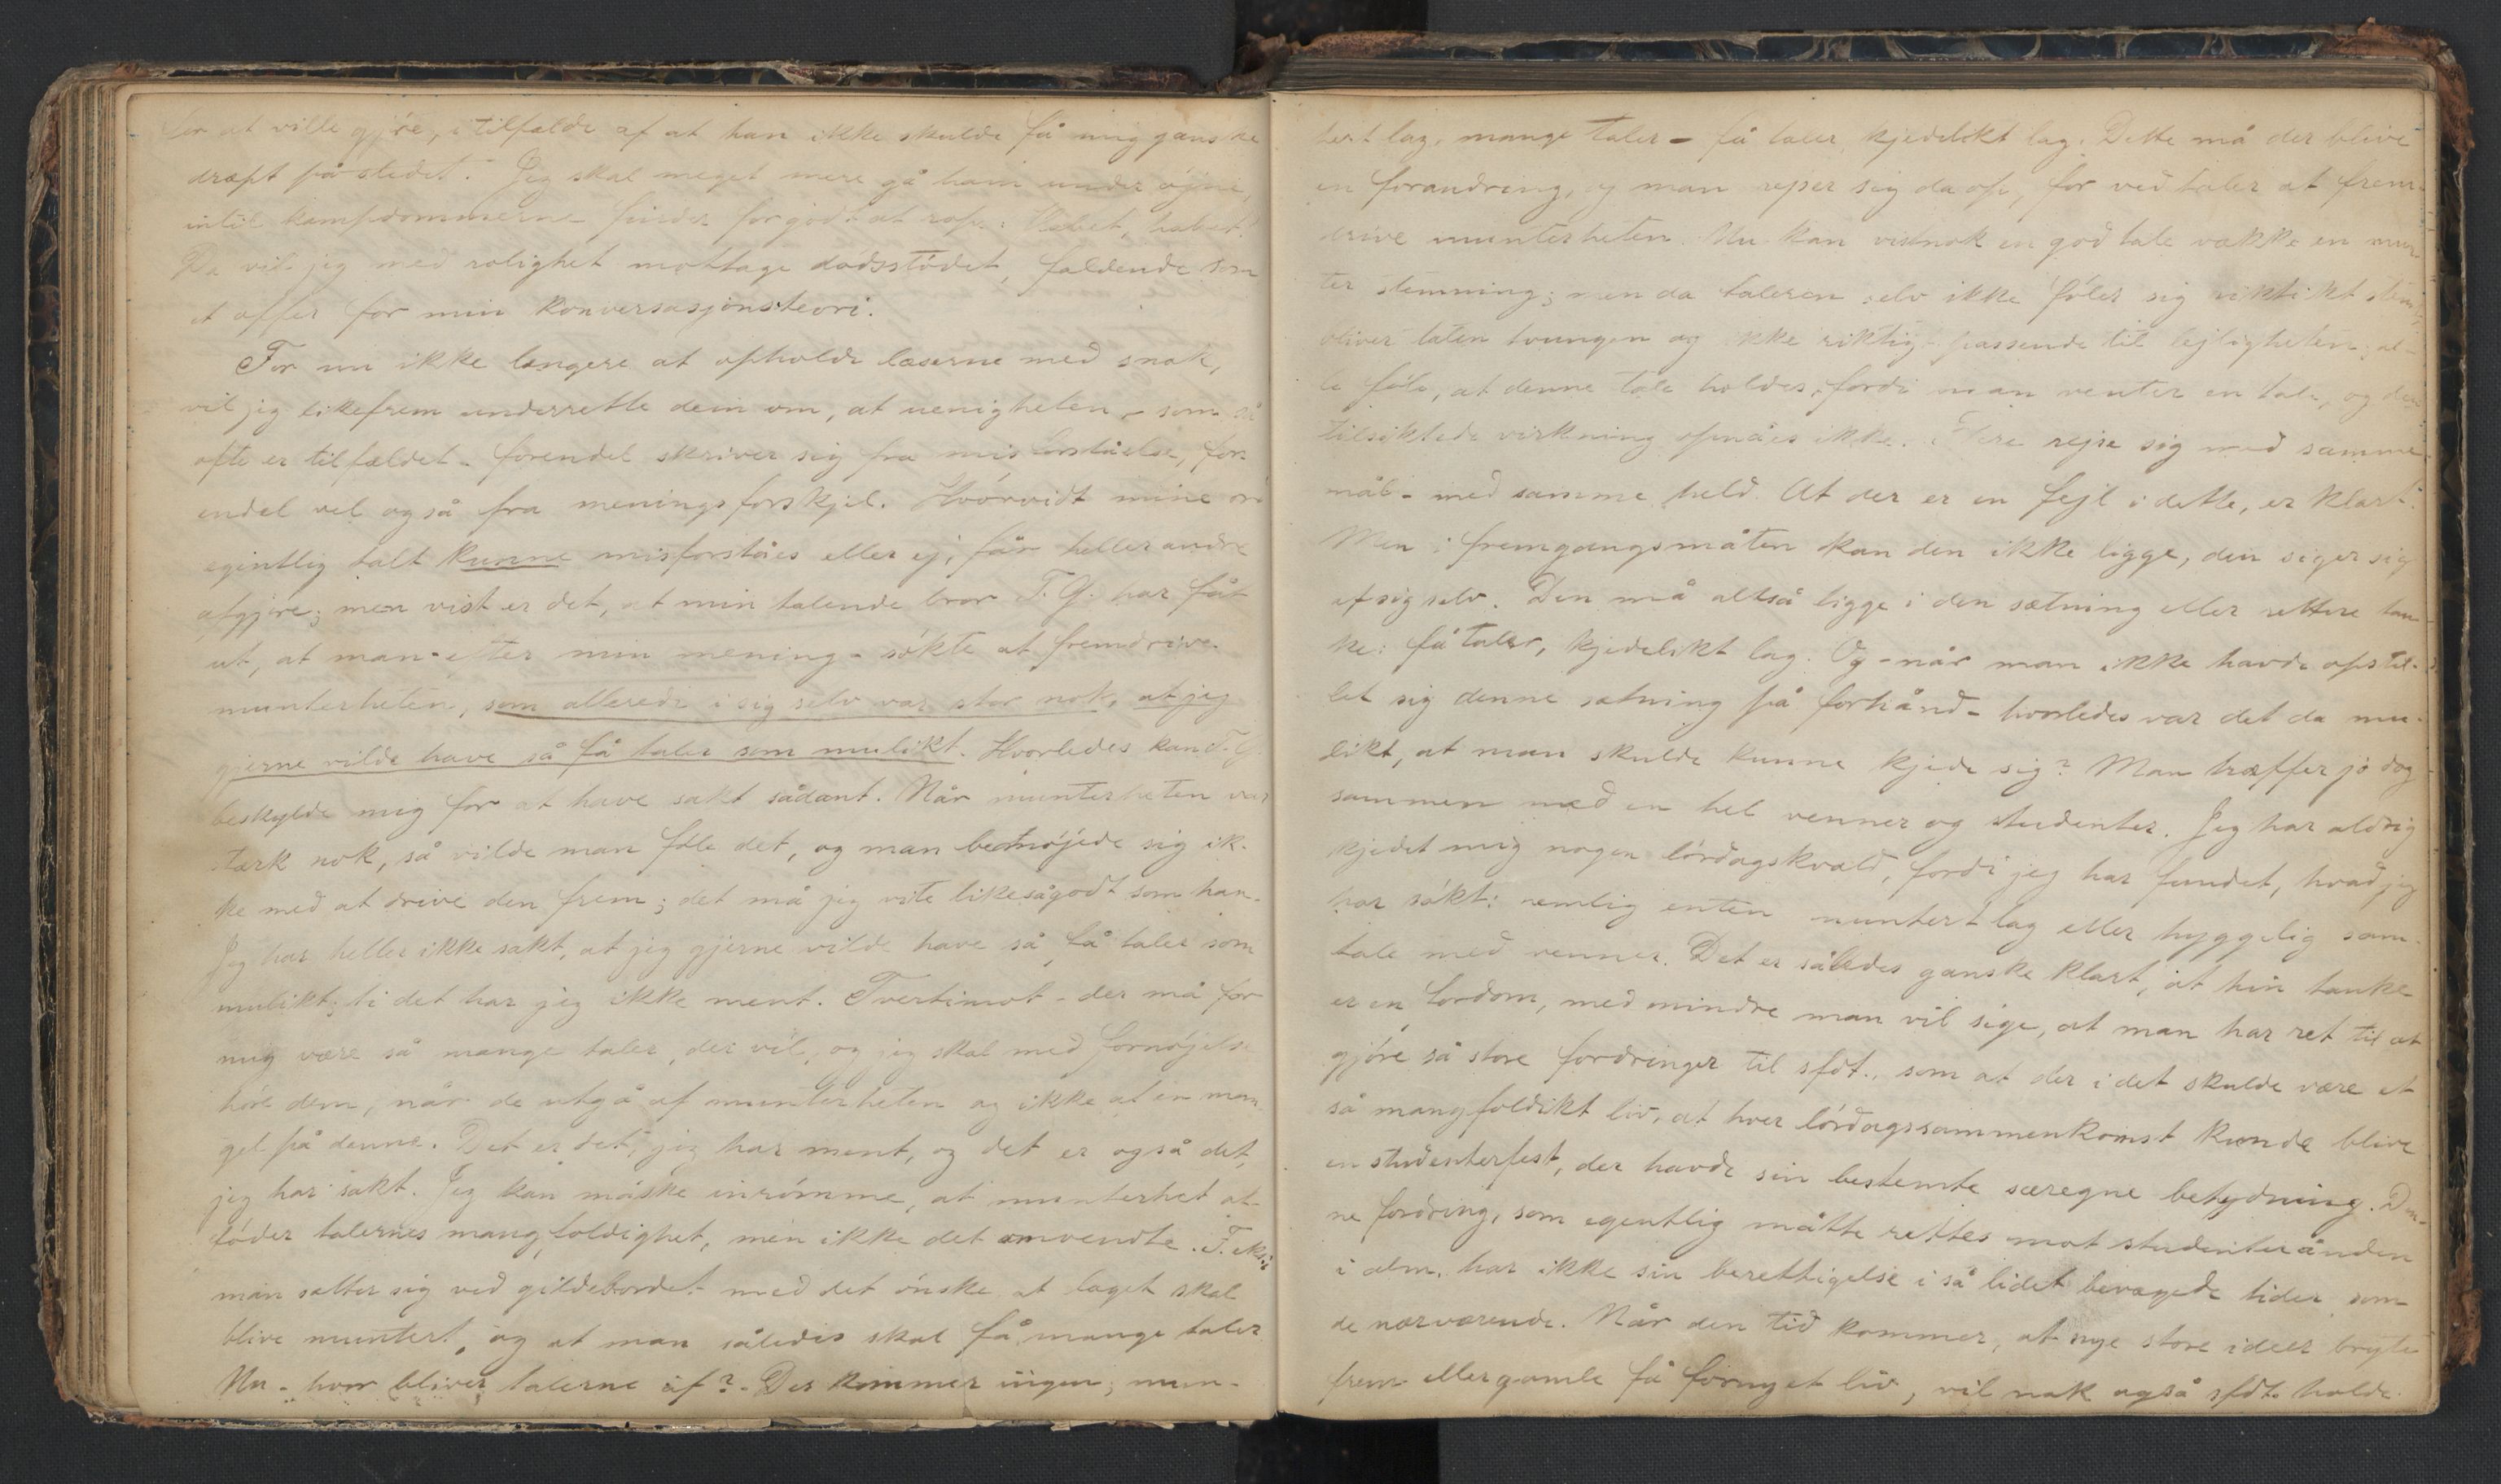 for at ville gjóre, i tilfælde af at han ikke skulde få mig ganske
dræpt på stedet. Jeg skal meget mere gå ham under ójne,
intil kampdommerne finder for godt at rope: Habet, habet!
Da vil jeg med rolighet mottage dødsstódet, faldende som
et offer for min konversasjonsteori.
For nu ikke længere at opholde læserne med snak,
vil jeg likefrem underrette dem om, at uenigheten - som så
ofte er tilfældet - forendel skriver sig fra misforståelse, for-
endel vel også fra meningsforskjel. Hvórvidt mine ord
egentlig talt kunne misforståes eller ej, får heller andre
afgjóre; men vist er det, at min talende bror F. G. har fåt
ut, at man - efter min mening - sókte at fremdrive
munterheten, som allerede i sig selv var stor nok, at jeg
gjerne vilde have så få taler som mulikt. Hvorledes kan F. G.
beskylde mig for at have sakt sådant. Når munterheten var
stærk nok, så vilde man fóle det, og man bemójede sig ik-
ke med at drive den frem; det må jeg vite likesågodt som han.
Jeg har heller ikke sakt, at jeg gjerne vilde have så få taler som
mulikt; ti det har jeg ikke ment. Tvertimot - der må for
mig være så mange taler, der vil, og jeg skal med fornójelse
hóre dem, når de utgå af munterheten og ikke af en man-
gel på denne. Det er det, jeg har ment, og det er også det,
jeg har sakt. Jeg kan måske inrómme, at munterhet af-
fóder talernes mangfoldighet, men ikke det omvendte. F. eks:
man sætter sig ved gildebordet med det ónske at laget skal
blive muntert, og at man således skal få mange taler
Nu - hvor bliver talerne af? - Der kommer ingen; mun-
tert lag, mange taler - få taler kjedelikt lag. Dette må der blive
en forandring, og man rejser sig da op, for ved taler at frem-
drive munterheten. Nu kan vistnok en god tale vække en mun-
ter stemning; men da taleren selv ikke fóler sig riktikt stemt,
bliver talen tvungen og ikke riktig passende til lejligheten; al-
le fóle, at denne tale holdes, fordi man venter en tale, og den
tilsiktede virkning opnåes ikke. Flere rejse sig med samme
mål - med samme held. At der er en fejl i dette, er klart.
Men i fremgangsmåten kan den ikke ligge, den siger sig
af sig selv. Den må altså ligge i den sætning eller rettere tan-
ke: få taler, kjedelikt lag. Og - når man ikke havde opstil-
let sig denne sætning på forhånd - hvorledes var det da mu-
likt, at man skulde kunne kjede sig? Man træffer jo dog
sammen med en hel venner og studenter. Jeg har aldrig
kjedet mig nogen lórdagskvæld, fordi jeg har fundet, hvad jeg
har sókt: nemlig enten muntert lag eller hyggelig sam-
tale med venner. Det er således ganske klart, at hin tanke
er en fordom, med mindre man vil sige, at man har ret til at
gjóre så store fordringer til sfdt., som at der i det skulde være et
så mangfoldikt liv, at hver lórdagssammenkomst kunde blive
en studenterfest, der havde sin bestemte særegne betydning. Den-
ne fordring, som egentlig måtte rettes mot studenterånden
i alm. har ikke sin berettigelse i så lidet bevægede tider som
de nærværende. Når den tid kommer, at nye store ideer bryte
frem eller gamle få fornyet liv, vil nok også sfdt. holde